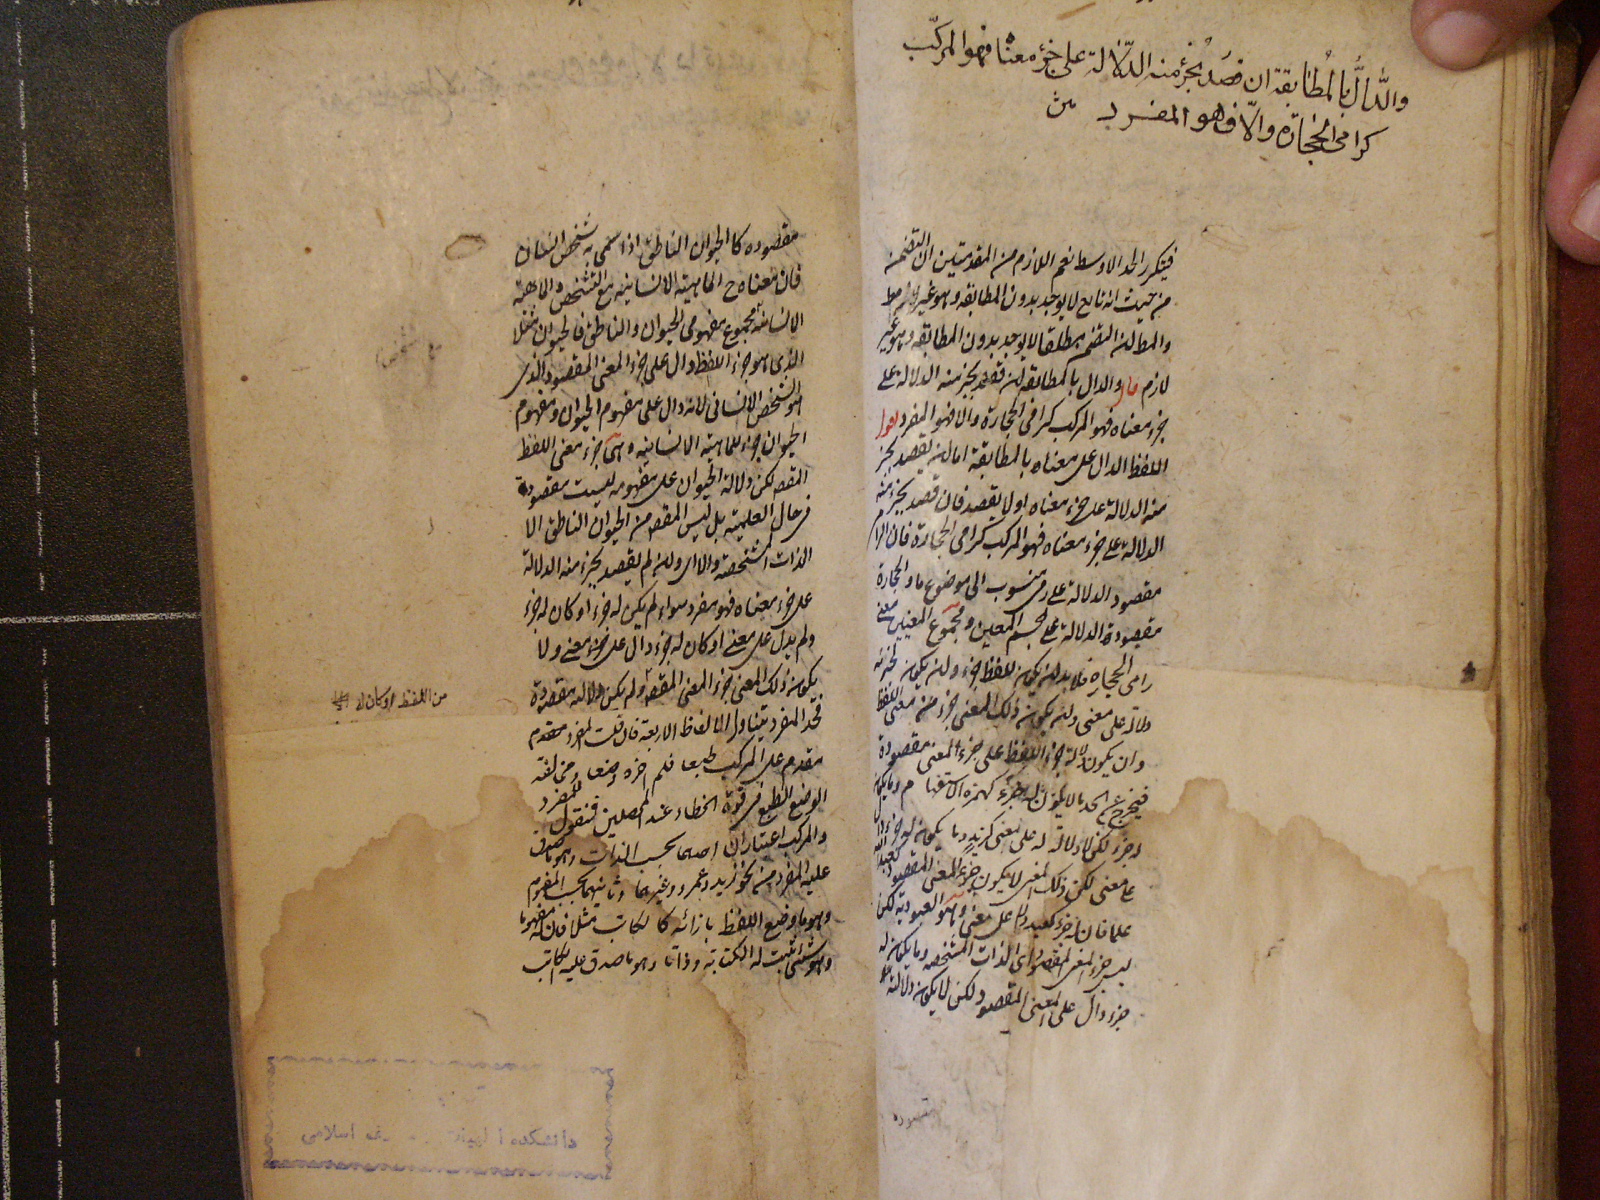 والدّالّ بالمُطابقة ان قصد بجزء منه الدّلالة على جزء معناه فهو المركّب
كرامى الحجارة والّا فهو المفرد من
فيتكرر الحد الاوسط نعم اللازم من المقدمتين ان التضمن
من حيث انه تابع لا يوجد بدون المطابقه وهو غير المط
والمط ان التضمن مطلقا لا يوجد بدون المطابقه وهو غير
لازم قال والدال بالمطابقه ان قصد بجزء منه الدلالة على
جزء معناه فهو المركب كرامى الحجارة والا فهو المفرد اقول
اللفظ الدال على معناه بالمطابقة اما ان يقصد بجزء
منه الدلالة على جزء معناه او لا يقصد فان قصد بجزء منه
الدلالة على جزء معناه فهو المركب كرامى الحجارة فان الرام
مقصود الدلالة على رمى منسوب الى موضوع ما والحجارة
مقصودة الدلالة على الجسم المعين ومجموع المعنيين معنى
رامى الحجاره فلا بد ان يكون للفظ جزء وان يكون لجزئه
دلالة على معنى وان يكون ذلك المعنى جزء من معنى اللفظ
وان يكون دلالة جزء اللفظ على جزء المعنى مقصودة
فيخرج عن الحد ما لا يكون له جزء كهمزة الاستفهام وما يكون
له جزء لكن لا دلالة له على معنى كزيد وما يكون له جزء دال
على معنى لكن ذلك المعنى لا يكون جزء المعنى المقصود كعبد الله
علما فان له جزء كعبد دال على معنى وهو العبودية لكن
ليس جزء المعنى المقصود اى الذات المشخصه وما يكون له
جزء دال على المعنى المقصود لكن لا يكون دلالته
مقصوده
مقصوده كالحيوان الناطق اذا سمى به شخص انسان
فان معناه ح الماهية الانسانيه مع التشخص والماهية
الانسانية مجموع مفهومى الحيوان والناطق فالحيوان مثلا
الذى هو جزء اللفظ دال على جزء المعنى المقصود الذى
هو الشخص الانسانى لانه دال على مفهوم الحيوان ومفهوم
الحيوان جزء للماهية الانسانيه وهى جزء معنى اللفظ
المقص لكن دلالة الحيوان على مفهومه ليست مقصودة
فى حال العلمية بل ليس المقص من الحيوان الناطق الا
الذات المشخصة والا اى وان لم يقصد بجزء منه الدلالة
على جزء معناه فهو مفرد سواء لم يكن له جزء او كان له جزء
ولم يدل على معنى او كان له جزء دال على جزء معنى ولا
يكون ذلك المعنى جزء المعنى المقص ولم يكن دلالته مقصودة
فحد المفرد يتناول الالفاظ الاربعة فان قلت المفرد مقدم
مقدم على المركب طبعا فلم اخره وضعا ومخالفة
الوضع الطبع فى قوة الخطاء عند المحصلين فنقول للمفرد
والمركب اعتباران احدهما بحسب الذات وهو ما صدق
عليه المفرد من نحو زيد وعمرو وغيرهما وثانيهما بحسب المفهوم
وهو ما وضع اللفظ بازائه كالكاتب مثلا فان له مفهوما
وهو شئ ثبت له الكتابة وذاتا وهو ما صدق عليه الكاتب
من اللفظ او كان له
دانشكده ا رف اسلامى